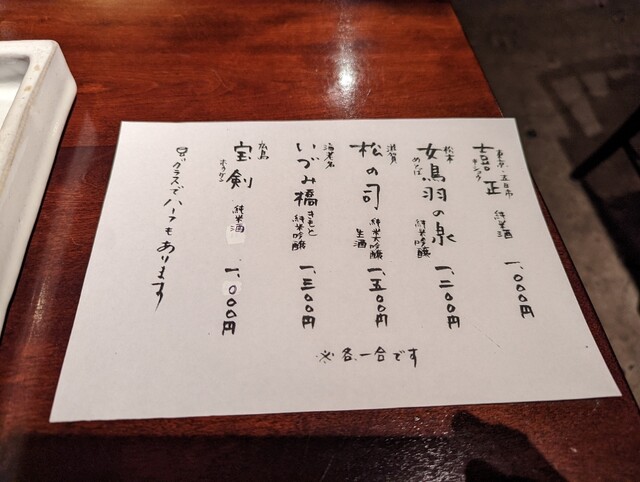 東京・五日市
喜正 純米酒 一、〇〇〇円
松本
女鳥羽の泉 純米吟醸 一、二〇〇円
めとば
滋賀
松の司 純米大吟醸 生酒 一、五〇〇円
海老名
いづみ橋 きもと 純米吟醸 一、三〇〇円
広島
宝剣 純米酒 一、〇〇〇円
ほうけん
グラスでハーフもあります
※各一合です